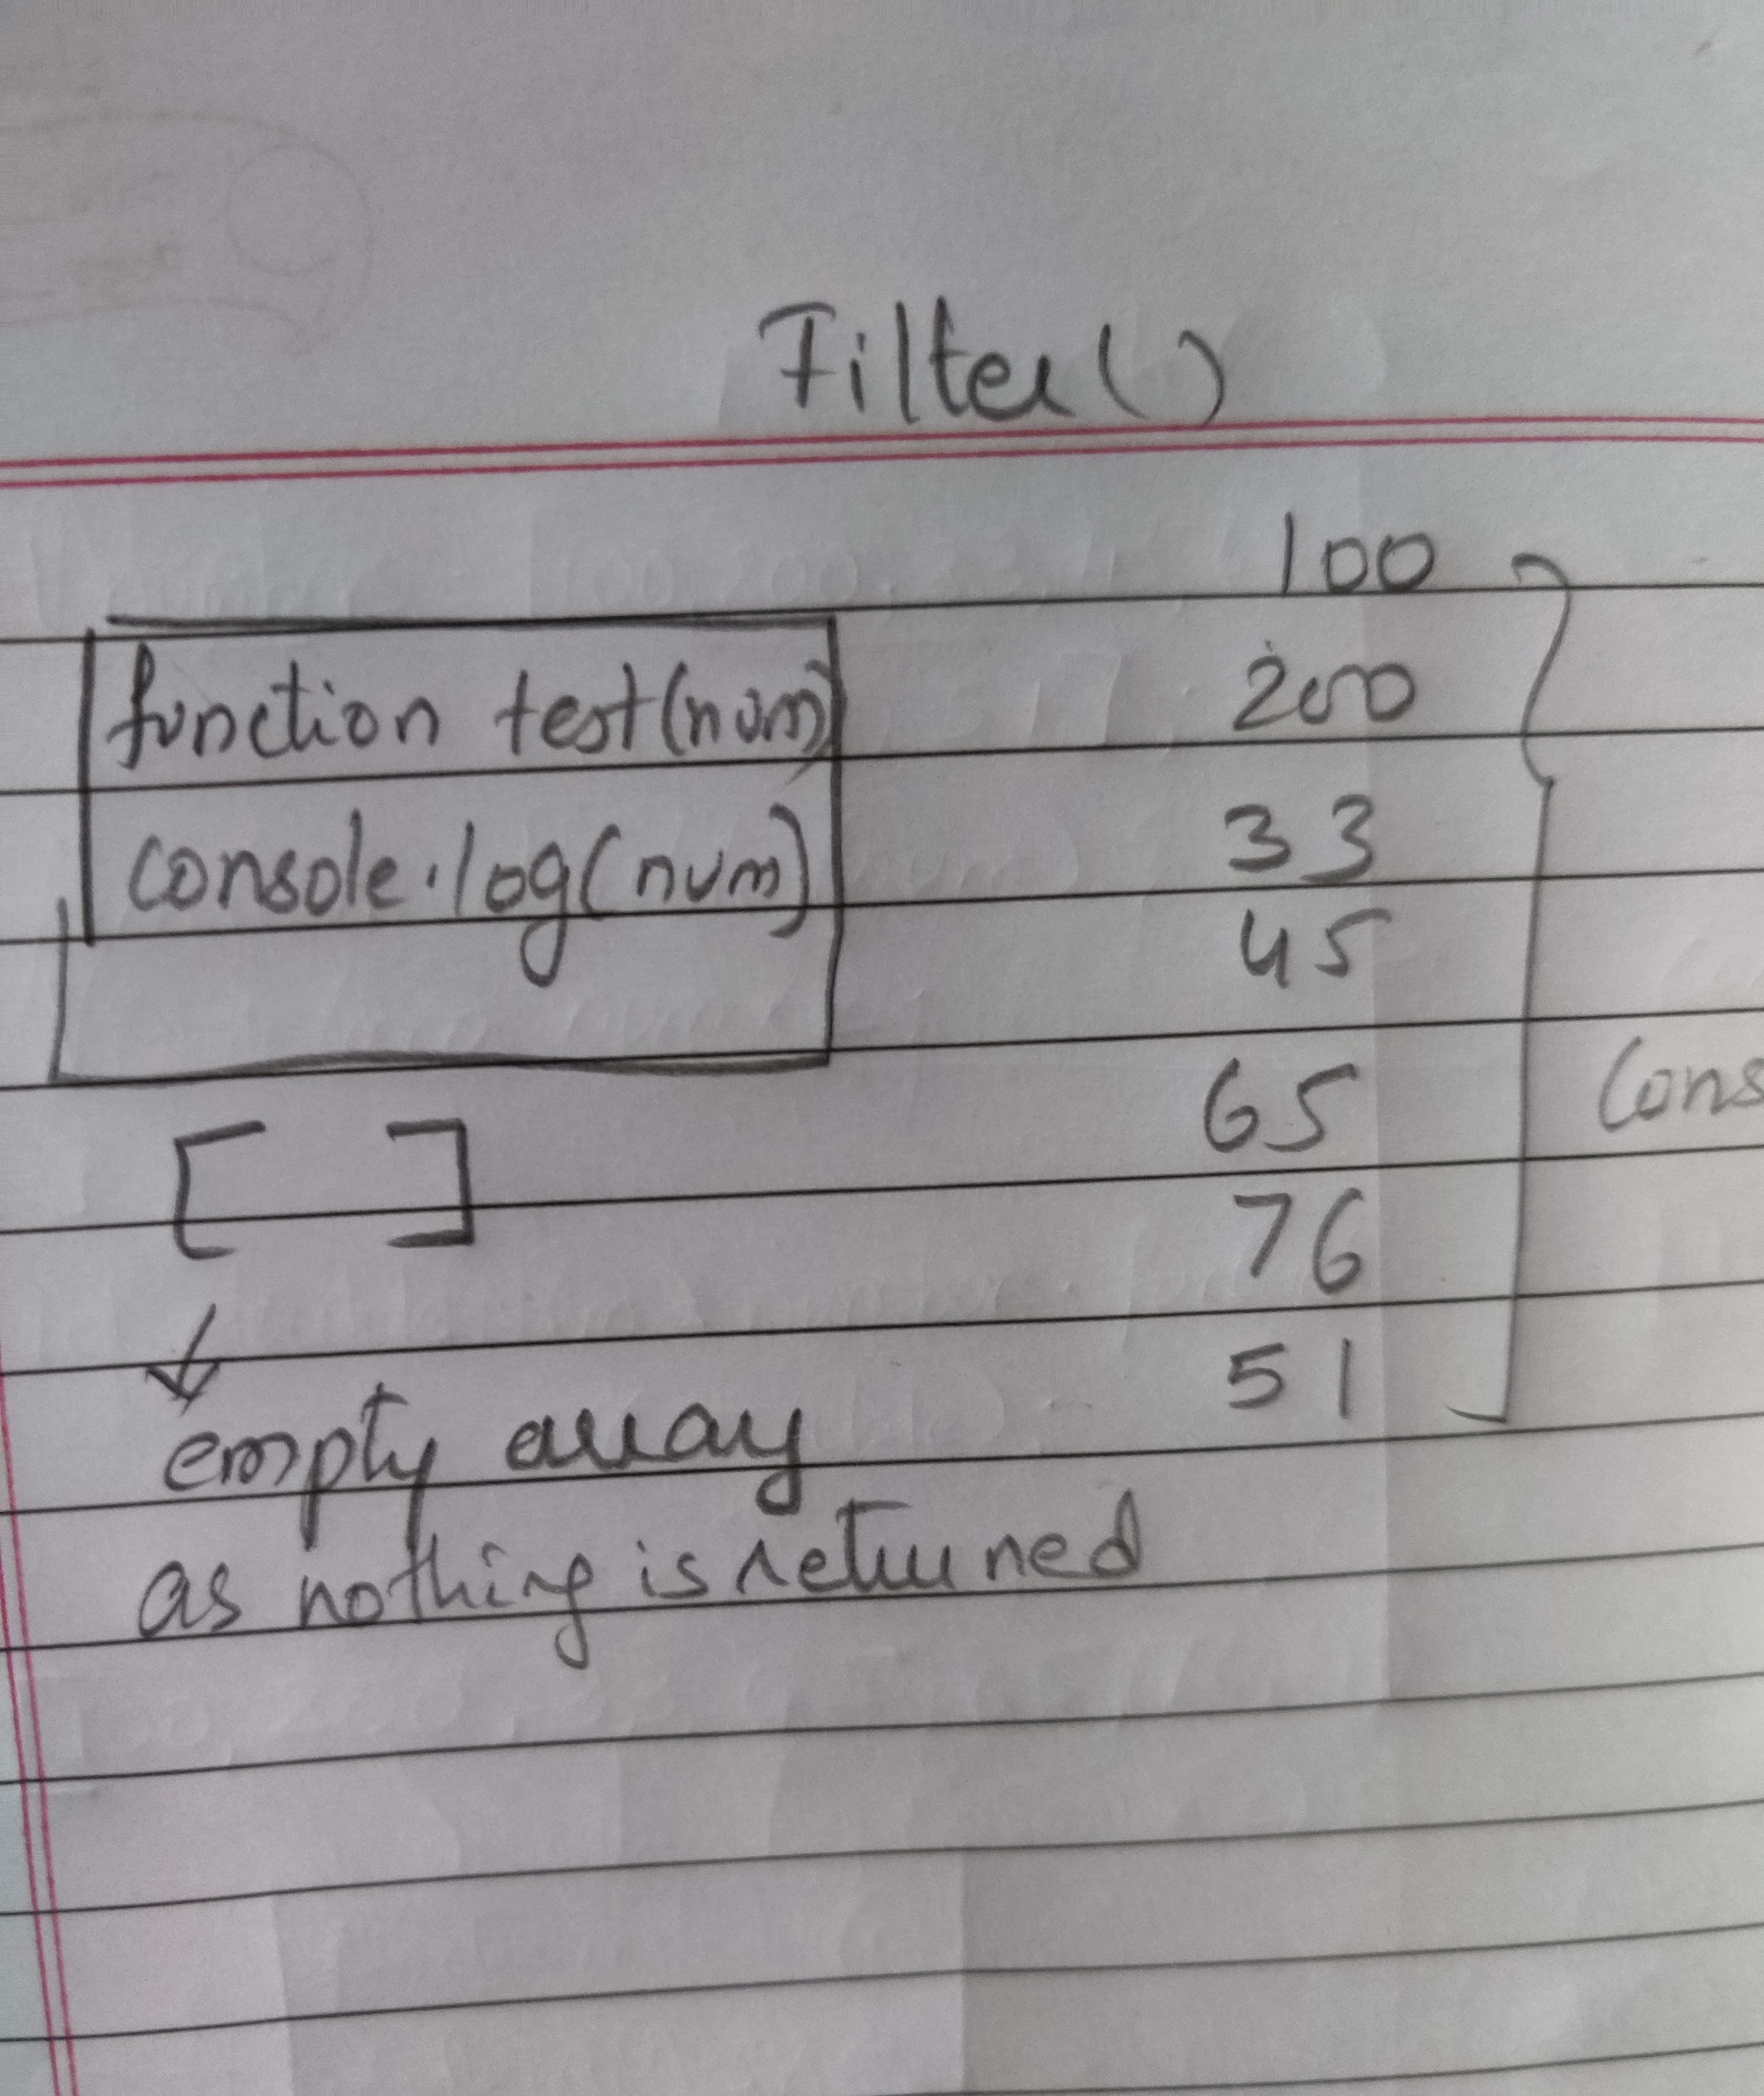 Filter()
function test(num)
console.log(num)
[ ]
empty array
as nothing is returned
100
200
33
45
65
76
51
Cons